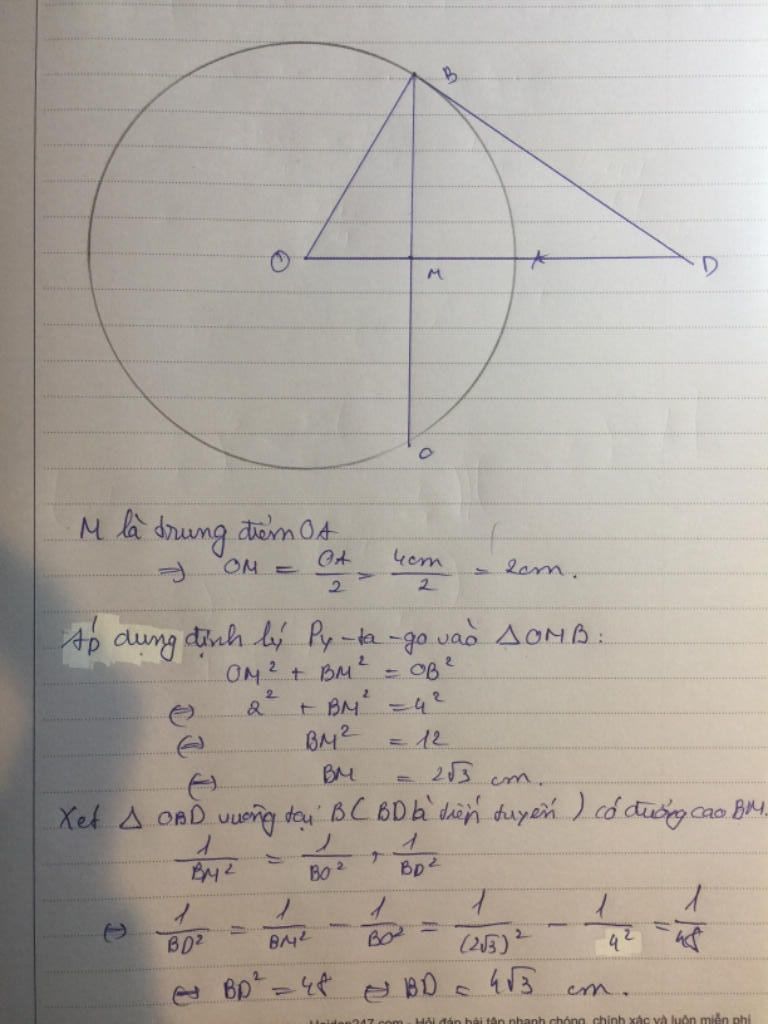 B
O
M
D
C
M là trung điểm OA
⇒ OM = OA/2 = 4cm/2 = 2cm.
Áp dụng định lý Py-ta-go vào △OMB:
OM² + BM² = OB²
⇔ 2² + BM² = 4²
⇔ BM² = 12
⇔ BM = 2√3 cm.
Xét △ OBD vuông tại B (BD là tiếp tuyến) có đường cao BM.
1/BM² = 1/BO² + 1/BD²
⇔ 1/BD² = 1/BM² - 1/BO² = 1/(2√3)² - 1/4² = 1/48
⇔ BD² = 48 ⇔ BD = 4√3 cm.
Hoidap247.com - Hỏi đáp bài tập nhanh chóng, chính xác và luôn miễn phí